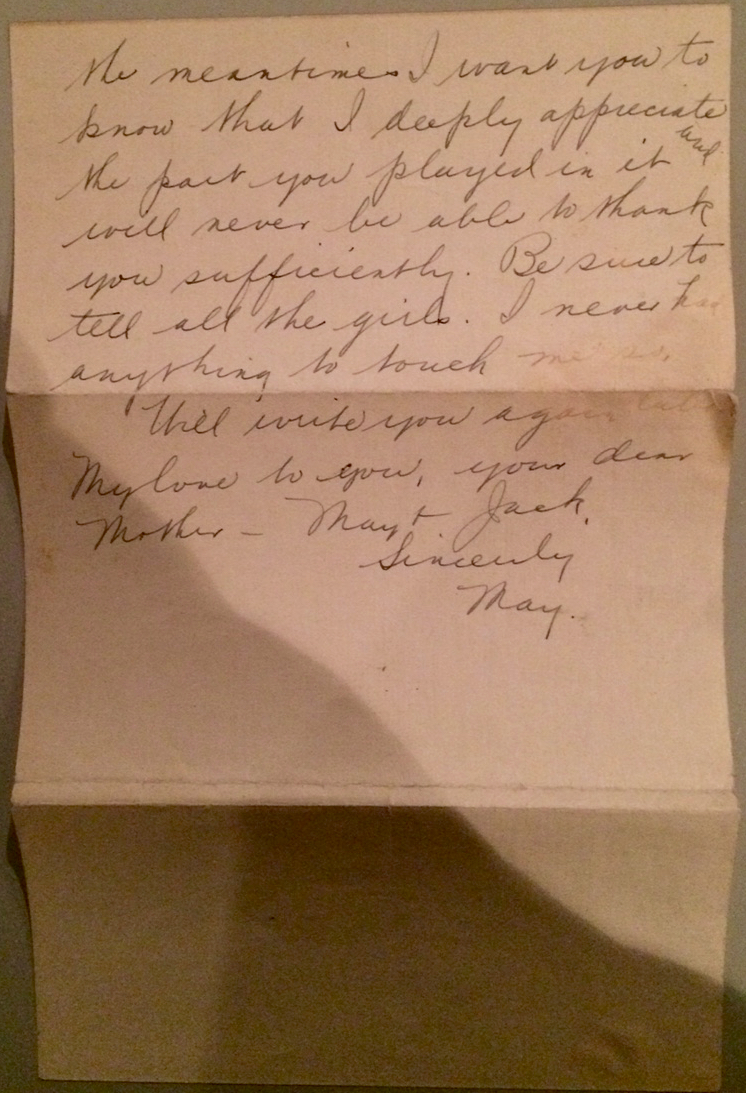 the meantime I want you to
know that I deeply appreciate
the part you played in it and
will never be able to thank
you sufficiently. Be sure to
tell all the girls. I never had
anything to touch me so.
Will write you again later
My love to you, your dear
Mother - May & Jack.
Sincerely
May.